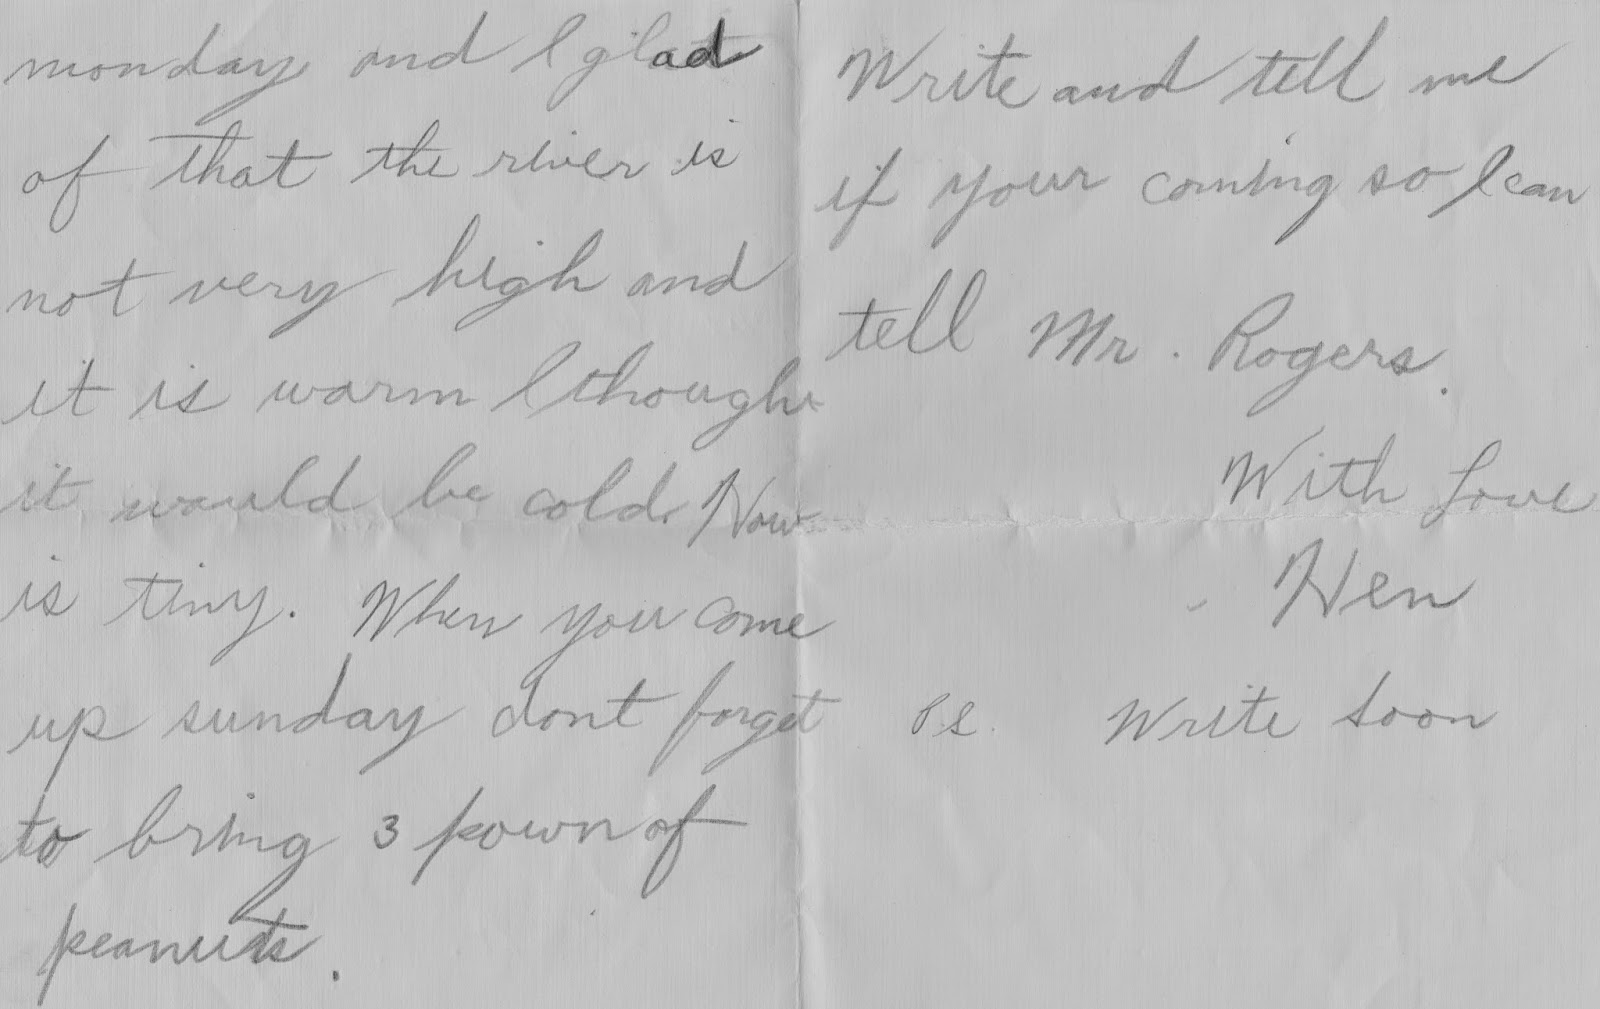 monday and I glad
of that the river is
not very high and
it is warm I thought
it would be cold. How
is tiny. When you come
up sunday dont forget
to bring 3 pown of
peanuts.
Write and tell me
if your coming so I can
tell Mr. Rogers.
With Love
Hen
P.S. Write soon